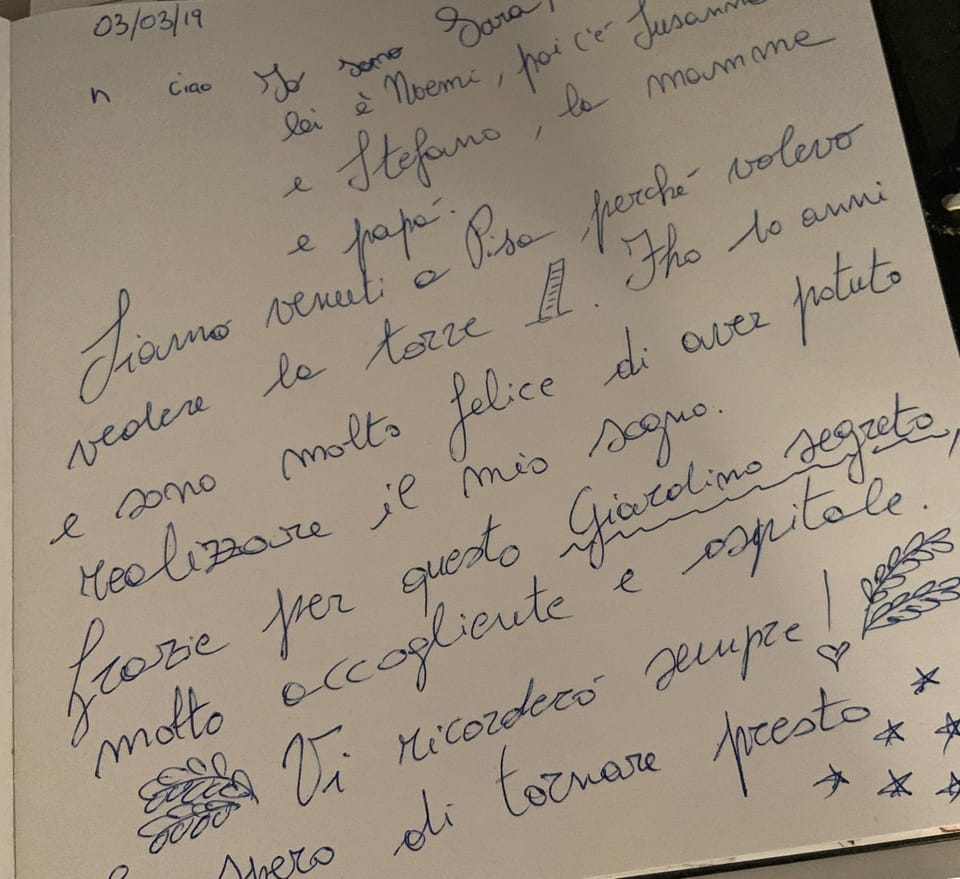 03/03/19
n ciao Io sono Sara,
lei è Noemi, poi c'è Susanna
e Stefano, la mamma
e papá.
Siamo venuti a Pisa perché volevo
vedere la torre. Iho 10 anni
e sono molto felice di aver potuto
realizzare il mio sogno.
Grazie per questo Giardino segreto,
molto accogliente e ospitale.
Vi ricorderó sempre!
spero di tornare presto